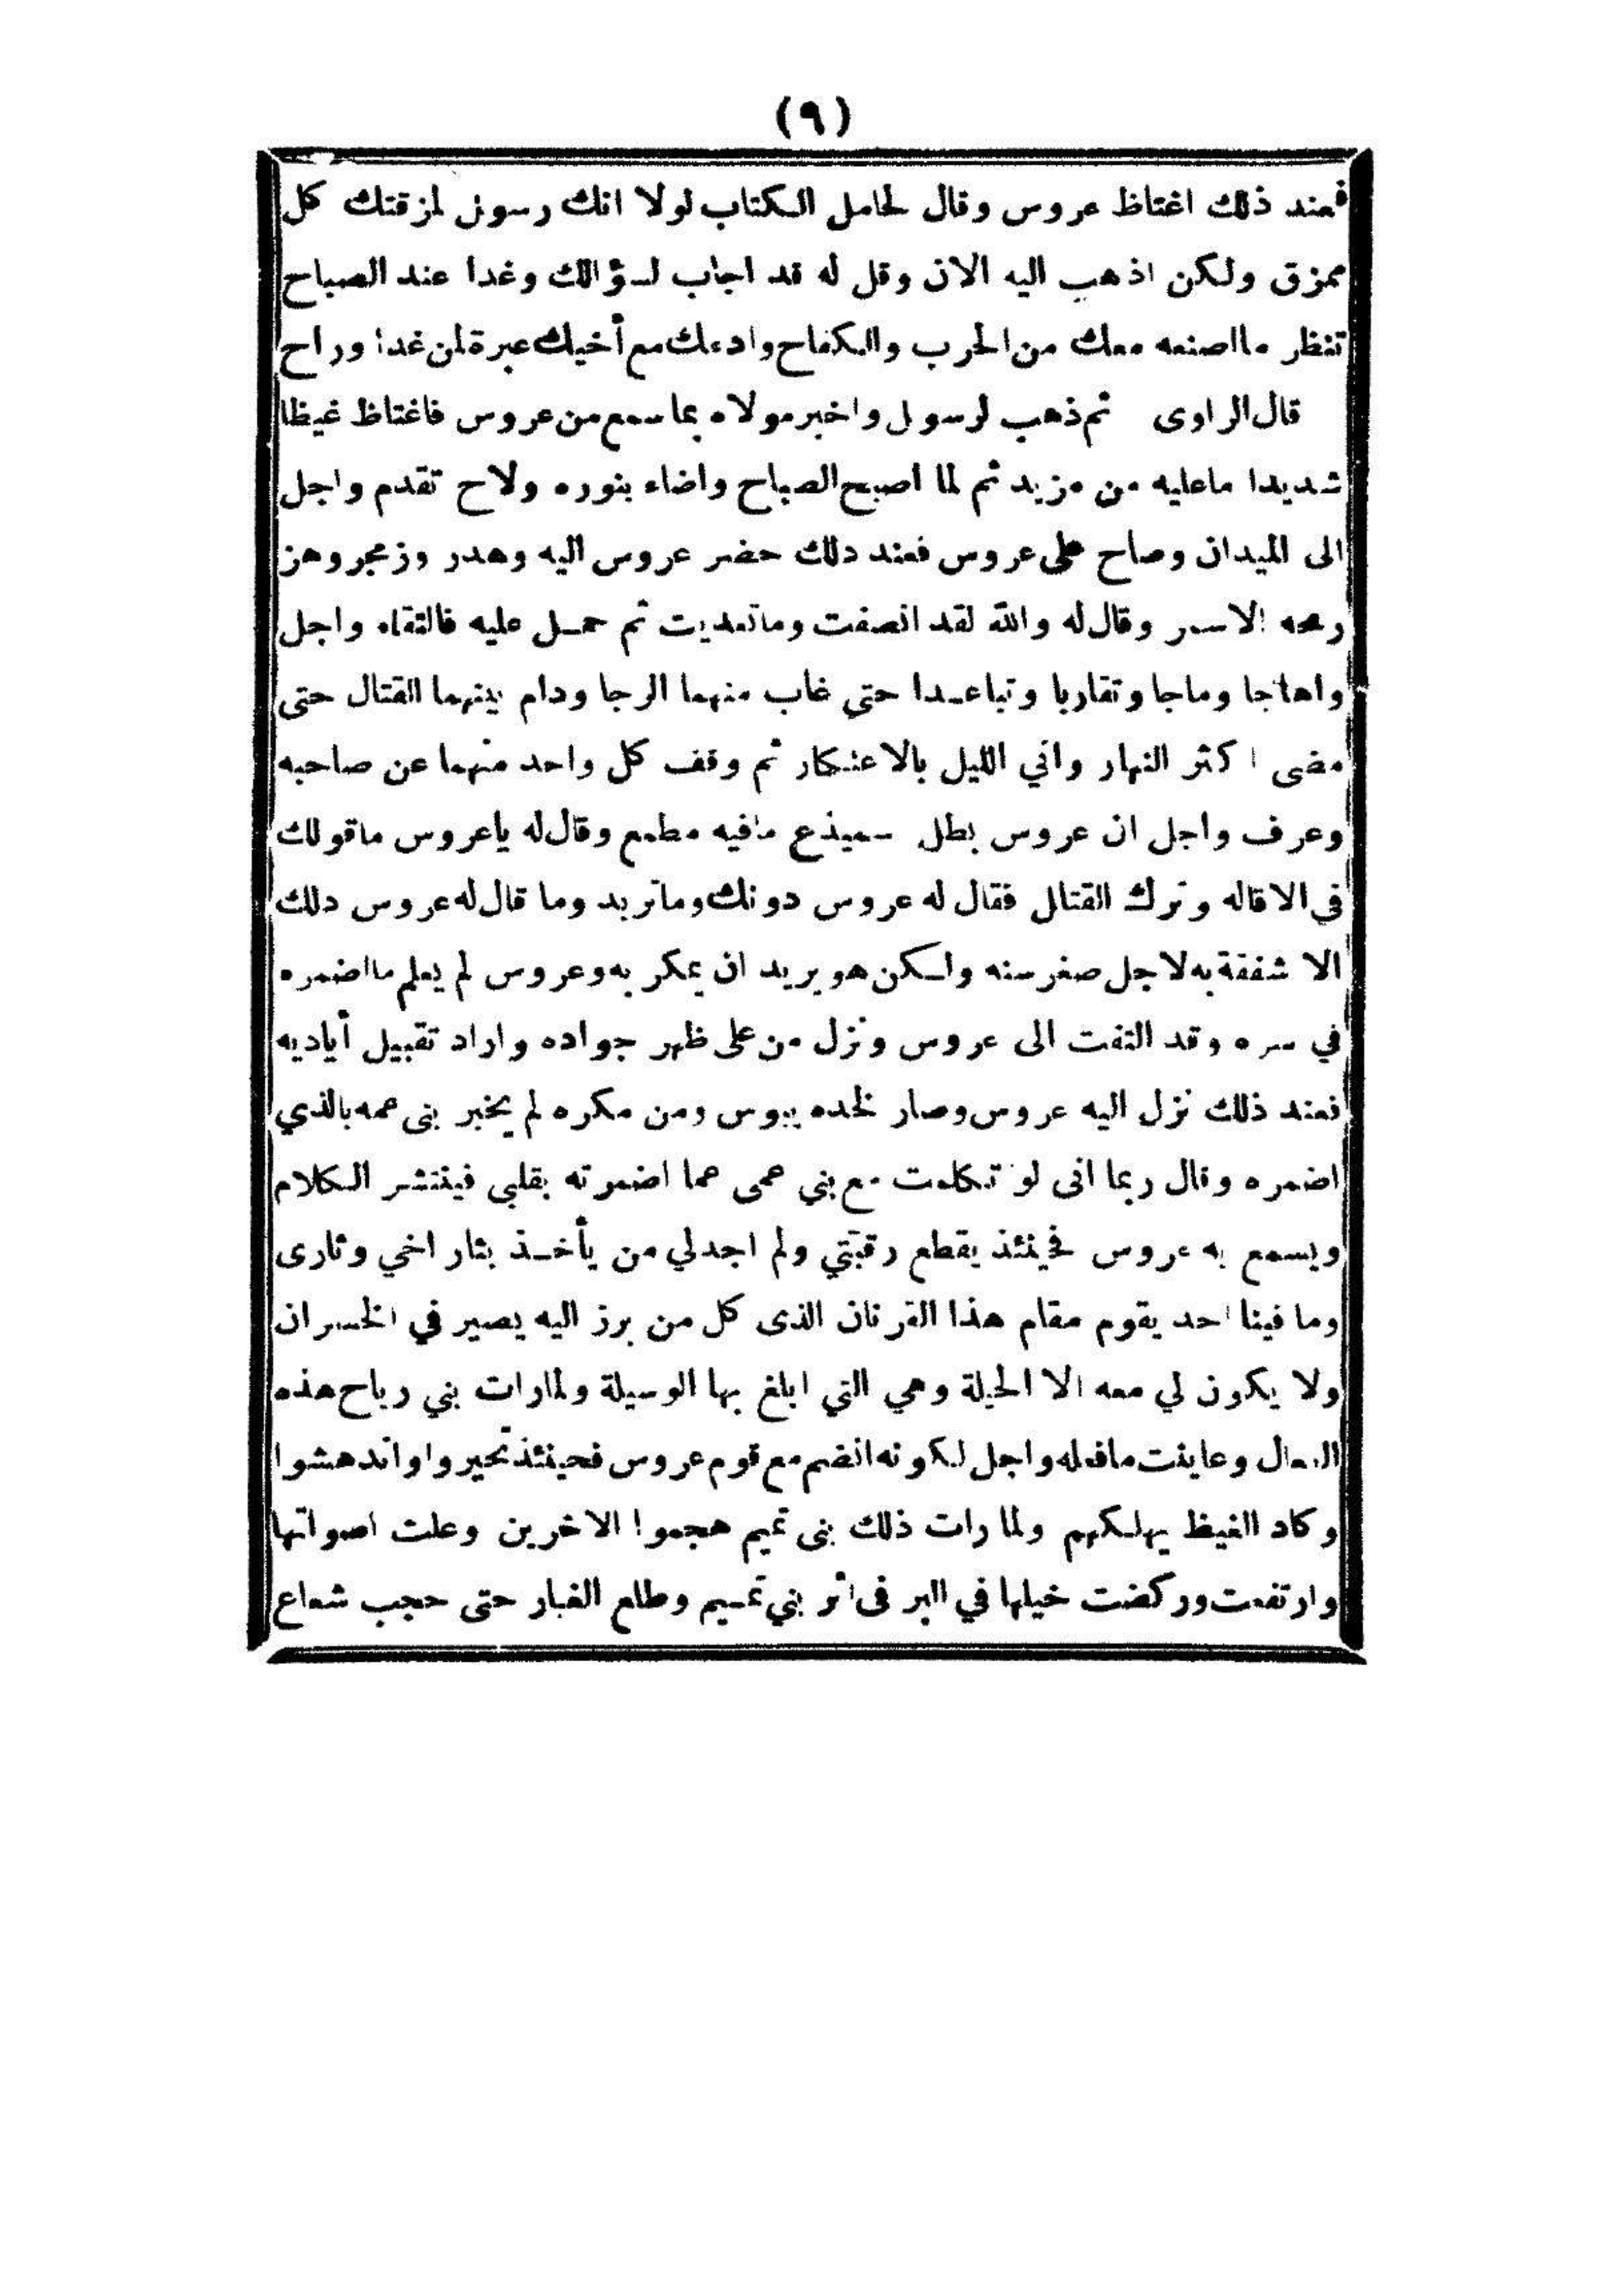 (٩)
فعند ذلك اغتاظ عروس وقال لحامل الكتاب لولا انك رسول لمزقتك كل
ممزق ولكن اذهب اليه الان وقل له قد اجاب لسؤالك وغدا عند الصباح
تنظر مااصنعه معك من الحرب والكفاح وادعك مع أخيك عبرة لمن غدا وراح
قال الراوى ثم ذهب لرسول واخبر مولاه بما سمع من عروس فاغتاظ غيظا
شديدا ماعليه من مزيد ثم لما اصبح الصباح واضاء بنوره ولاح تقدم واجل
الى الميدان وصاح على عروس فعند دلك حضر عروس اليه وهدر وزمجر وهز
رمحه الاسمر وقال له والله لقد انصفت وماتعديت ثم حمل عليه فالتقاه واجل
واهاجا وماجا وتقاربا وتباعدا حتى غاب منهما الرجا ودام بينهما القتال حتى
مضى اكثر النهار واتي الليل بالاعتكار ثم وقف كل واحد منهما عن صاحبه
وعرف واجل ان عروس بطل سميذع مافيه مطمع وقال له ياعروس ماقولك
في الاقاله وترك القتال فقال له عروس دونك وماتريد وما قال له عروس دلك
الا شفقة به لاجل صغر سنه ولكن هو يريد ان يمكر به وعروس لم يعلم مااضمره
في سره وقد التفت الى عروس ونزل من على ظهر جواده واراد تقبيل أياديه
فعند ذلك نزل اليه عروس وصار لخده يبوس ومن مكره لم يخبر بنى عمه بالذي
اضمره وقال ربما انى لو تكلمت مع بني عمى عما اضمرته بقلبي فينتشر الكلام
ويسمع به عروس فحينئذ يقطع رقبتي ولم اجدلي من يأخذ بثار اخي وثارى
وما فينا احد يقوم مقام هذا القرنان الذى كل من برز اليه يصير في الخسران
ولا يكون لي معه الا الحيلة وهي التي ابلغ بها الوسيلة ولمارات بني رباح هذه
الفعال وعاينت مافعله واجل لكونه انضم مع قوم عروس فحينئذ تحيروا واندهشوا
وكاد الغيظ يهلكهم ولما رات ذلك بنى تميم هجموا الاخرين وعلت اصواتها
وارتفعت وركضت خيلها في البر فى اثر بني تميم وطلع الغبار حتى حجب شعاع